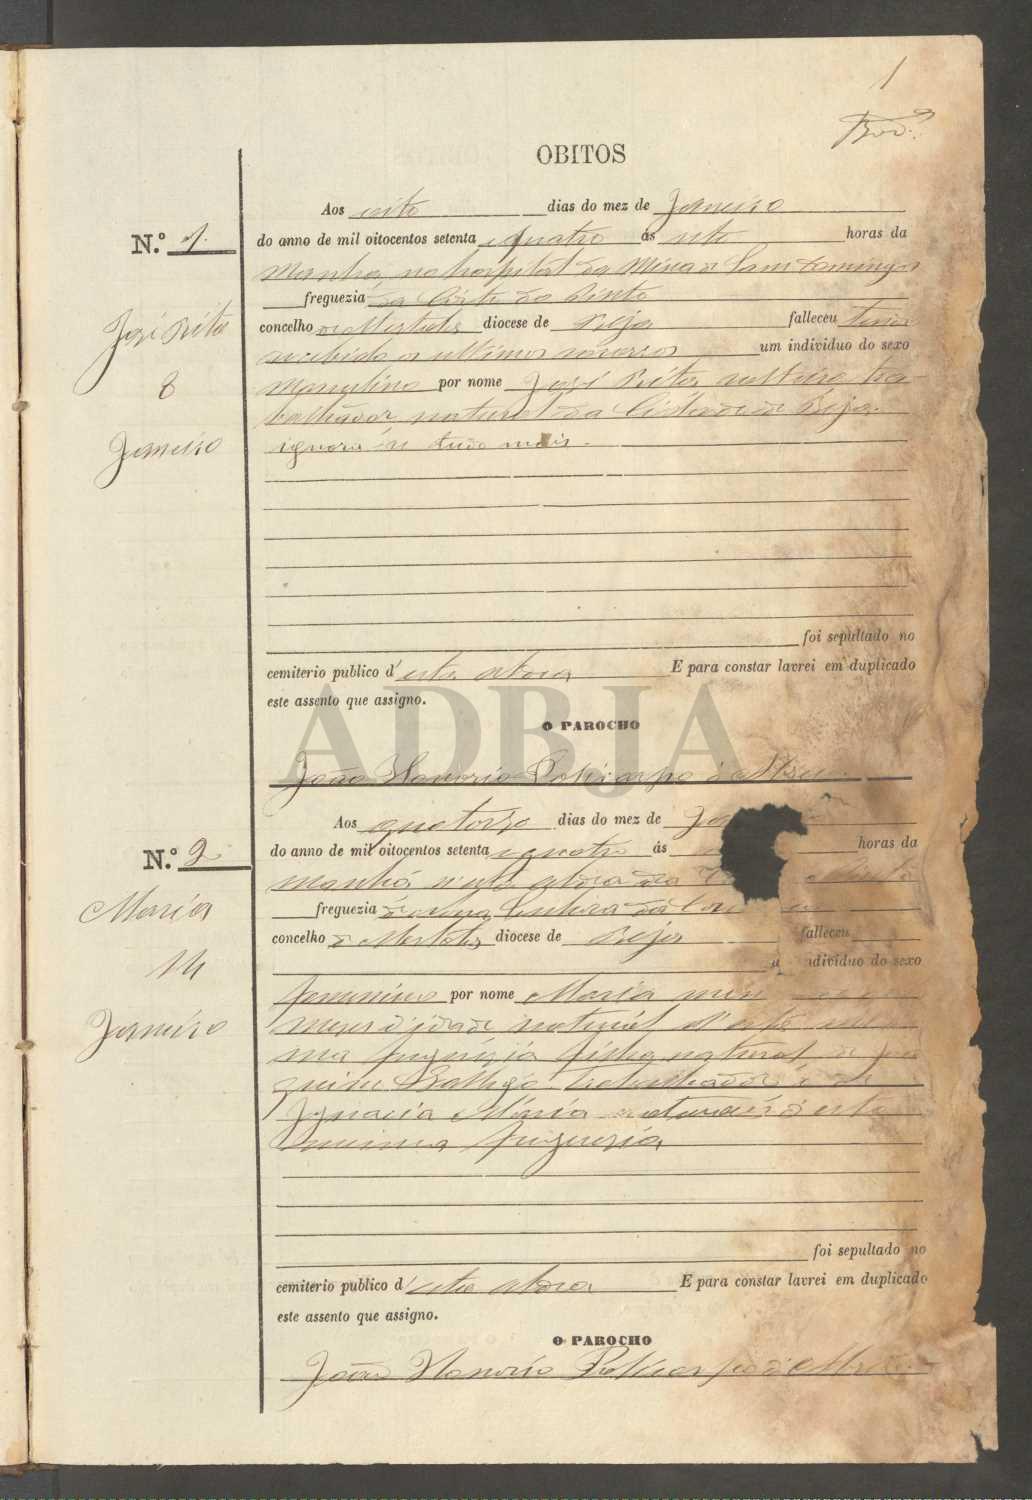 1
OBITOS
Aos oito dias do mez de Janeiro
N.º 1
do anno de mil oitocentos setenta e quatro ás oito horas da
manhã, no hospital da Mina de Sam Domingos
freguezia da Corte do Pinto
José Rita
concelho de Mertola diocese de Beja falleceu tendo
recebido os ultimos socorros um individuo do sexo
8
masculino por nome José Rita, solteiro tra-
balhador, natural da Cidade de Beja.
Janeiro
ignora-se tudo mais.
foi sepultado no
cemiterio publico d'esta aldea E para constar lavrei em duplicado
este assento que assigno.
ADBJA
O PAROCHO
João Honorio Policarpo d'Abreu.
Aos quatorze dias do mez de Ja
N.º 2
do anno de mil oitocentos setenta e quatro ás horas da
manhã n'esta aldea da Pinto
Maria
freguezia
concelho de Mertola diocese de Beja falleceu
14
individuo do sexo
femenino por nome Maria
Janeiro
meses d'idade natural d'esta mes-
ma freguezia filha natural de Joa
quim trabalhador e de
Ignacia Maria naturaes d'esta
mesma freguezia
foi sepultado no
cemiterio publico d'esta aldea E para constar lavrei em duplicado
este assento que assigno.
O PAROCHO
João Honorio Policarpo d'Abreu.